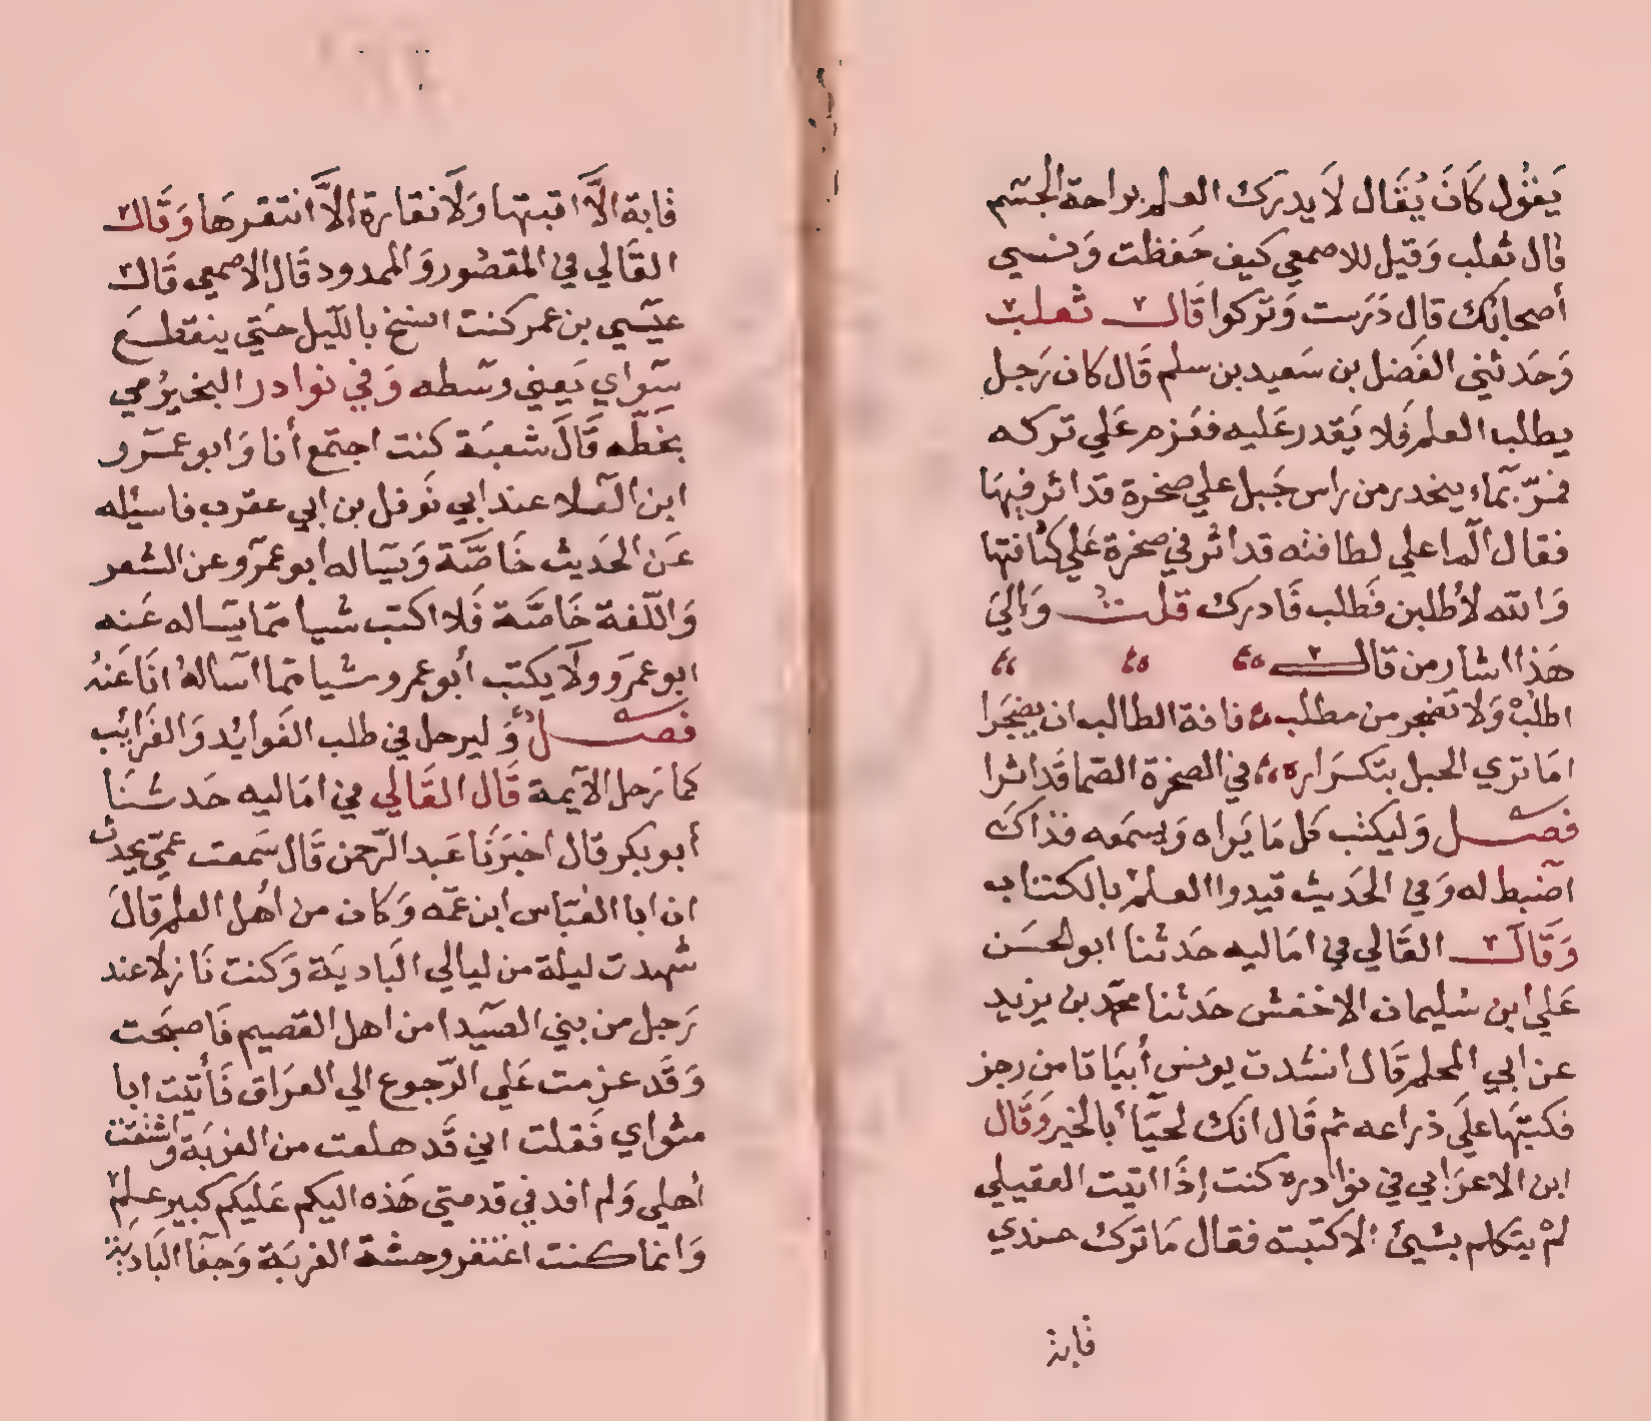 يَقُول كَانَ يُقَال لاَ يدرك العلم براحة الجسم
قال ثعلب وَقيل للاصمعي كيف حَفظت وَنسي
أصحابك قال دَرَست وَتركوا قَال ثعلب
وَحَدثني الفَضل بن سَعيد بن سلم قَال كان رَجل
يطلب العلم فَلا يَقدر عَليه فعَزم عَلي تركه
فمرّ بمآء ينحدر من راس جَبل علي صخرة قد اثر فيهَا
فقال المآ علي لطافته قد اثر في صخرة عَلي كثافتها
وَالله لأطلبن فطلب فَادرك قلت وَالي
هَذا اشار من قال
اطلبْ وَلا تضجر من مطلب فافة الطالب ان يضجَرا
امَا تري الحبل بتكرَاره في الصخرة الصّما قَد اثرا
فصل وَليكتب كل مَا يَراه وَيسمَعه فذاك
اضبط له وَفي الحَديث قيدوا العلمْ بالكتاب
وَقَال القَالي في امَاليه حَدثنا ابو الحسَن
عَلي ابن سُليمان الاخفش حَدثنا محمّد بن يزيد
عن ابي المحلم قَال انشدت يونس أبيَاتا من رجز
فكتبَهَا علَي ذراعه ثم قَال انك لحيّا أ بالخير وَقَال
ابن الاعرَابي في نوادره كنت إذَا اتيت العقيلي
لمْ يتكلم بشيئ الا كتبته فقال مَا ترك عندي
قابة
قابة الاَّ اقتبتها وَلاَ نقارة الاَّ انتقرهَا وَقَال
القَالي في المقصُور وَالممدود قَال الاصمعي قَال
عيسَي بن عمر كنت انسخ بالليل حَتي ينقطع
سوَاي يَعني وسَطه وَفي نوادر النجيرُمي
بخَطّه قَالَ شعبَة كنت اجتمع أنا وَابو عمرو
ابن العَلا عند ابي نَوفل بن ابي عقرب فاسئله
عَن الحَديث خَاصَّة وَيسَاله ابو عمرَو عن الشعر
وَاللّغة خَاصَّة فَلا اكتب شيا ممّا يسَاله عَنه
ابو عمرَو وَلاَ يكتب أبو عمرو شيا ممّا اسَالهُ انَا عَنهُ
فصل وَليرحل في طلب الفَوايُد وَالغَرايُب
كما رَحل الآيمة قَال القَالي في امَاليه حَدثنَا
أبو بكر قال اخبَرَنَا عَبد الرّحمن قَال سَمعت عمّي يحدث
ان ابا العَبّاس ابن عمّه وَكان من اهُل العلم قَالَ
شهدت ليلة من ليالي البَاديَة وَكنت نَازلا عند
رَجل من بني الصيدا من اهل القصيم فَاصبَحت
وَقَد عزمت عَلي الرّجوع الي العرَاق فَأتيت ابا
مثواي فَقلت اني قَد هلعت من الغربَة وَاشتقت
أهلي وَلم افد في قدمتي هَذه اليكم عَليكم كبير علمْ
وَانما كنت اغتفر وحشة الغربَة وَجفآ البَادية